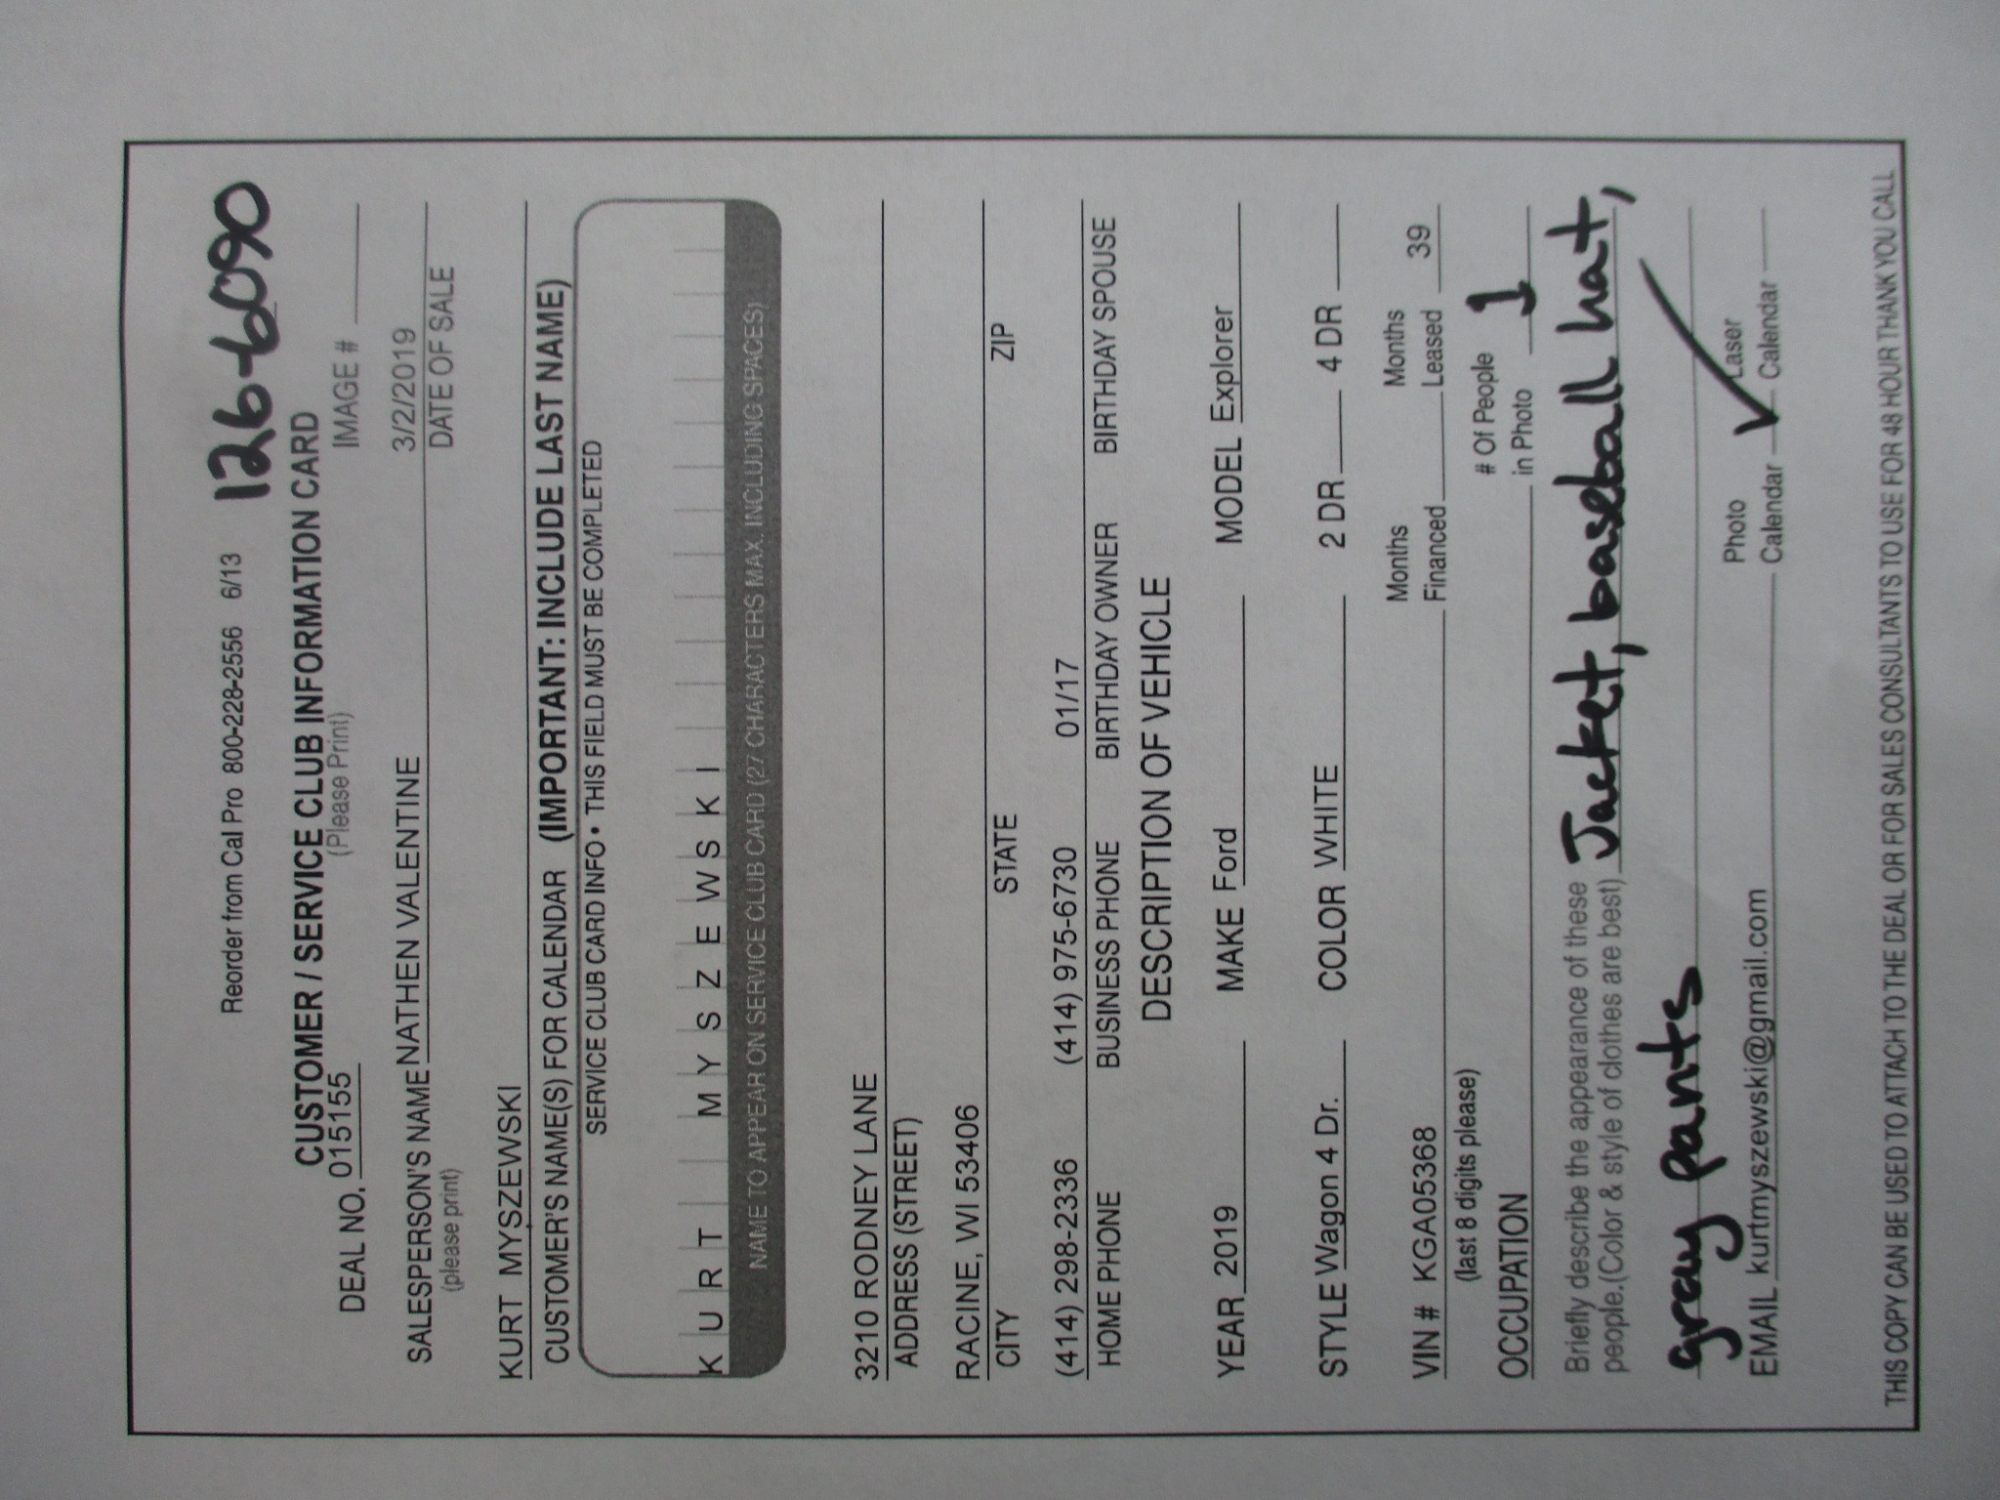 Reorder from Cal Pro 800-228-2556 6/13 126-6090
CUSTOMER / SERVICE CLUB INFORMATION CARD
DEAL NO. 015155 (Please Print) IMAGE #
SALESPERSON'S NAME NATHEN VALENTINE 3/2/2019
(please print) DATE OF SALE
KURT MYSZEWSKI
CUSTOMER'S NAME(S) FOR CALENDAR (IMPORTANT: INCLUDE LAST NAME)
SERVICE CLUB CARD INFO • THIS FIELD MUST BE COMPLETED
K U R T M Y S Z E W S K I
NAME TO APPEAR ON SERVICE CLUB CARD (27 CHARACTERS MAX. INCLUDING SPACES)
3210 RODNEY LANE
ADDRESS (STREET)
RACINE, WI 53406
CITY STATE ZIP
(414) 298-2336 (414) 975-6730 01/17
HOME PHONE BUSINESS PHONE BIRTHDAY OWNER BIRTHDAY SPOUSE
DESCRIPTION OF VEHICLE
YEAR 2019 MAKE Ford MODEL Explorer
STYLE Wagon 4 Dr. COLOR WHITE 2 DR 4 DR
Months Months
VIN # KGA05368 Financed Leased 39
(last 8 digits please) # Of People
OCCUPATION in Photo 1
Briefly describe the appearance of these
people.(Color & style of clothes are best) Jacket, baseball hat,
gray pants
Photo Laser
EMAIL kurtmyszewski@gmail.com Calendar Calendar
THIS COPY CAN BE USED TO ATTACH TO THE DEAL OR FOR SALES CONSULTANTS TO USE FOR 48 HOUR THANK YOU CALL